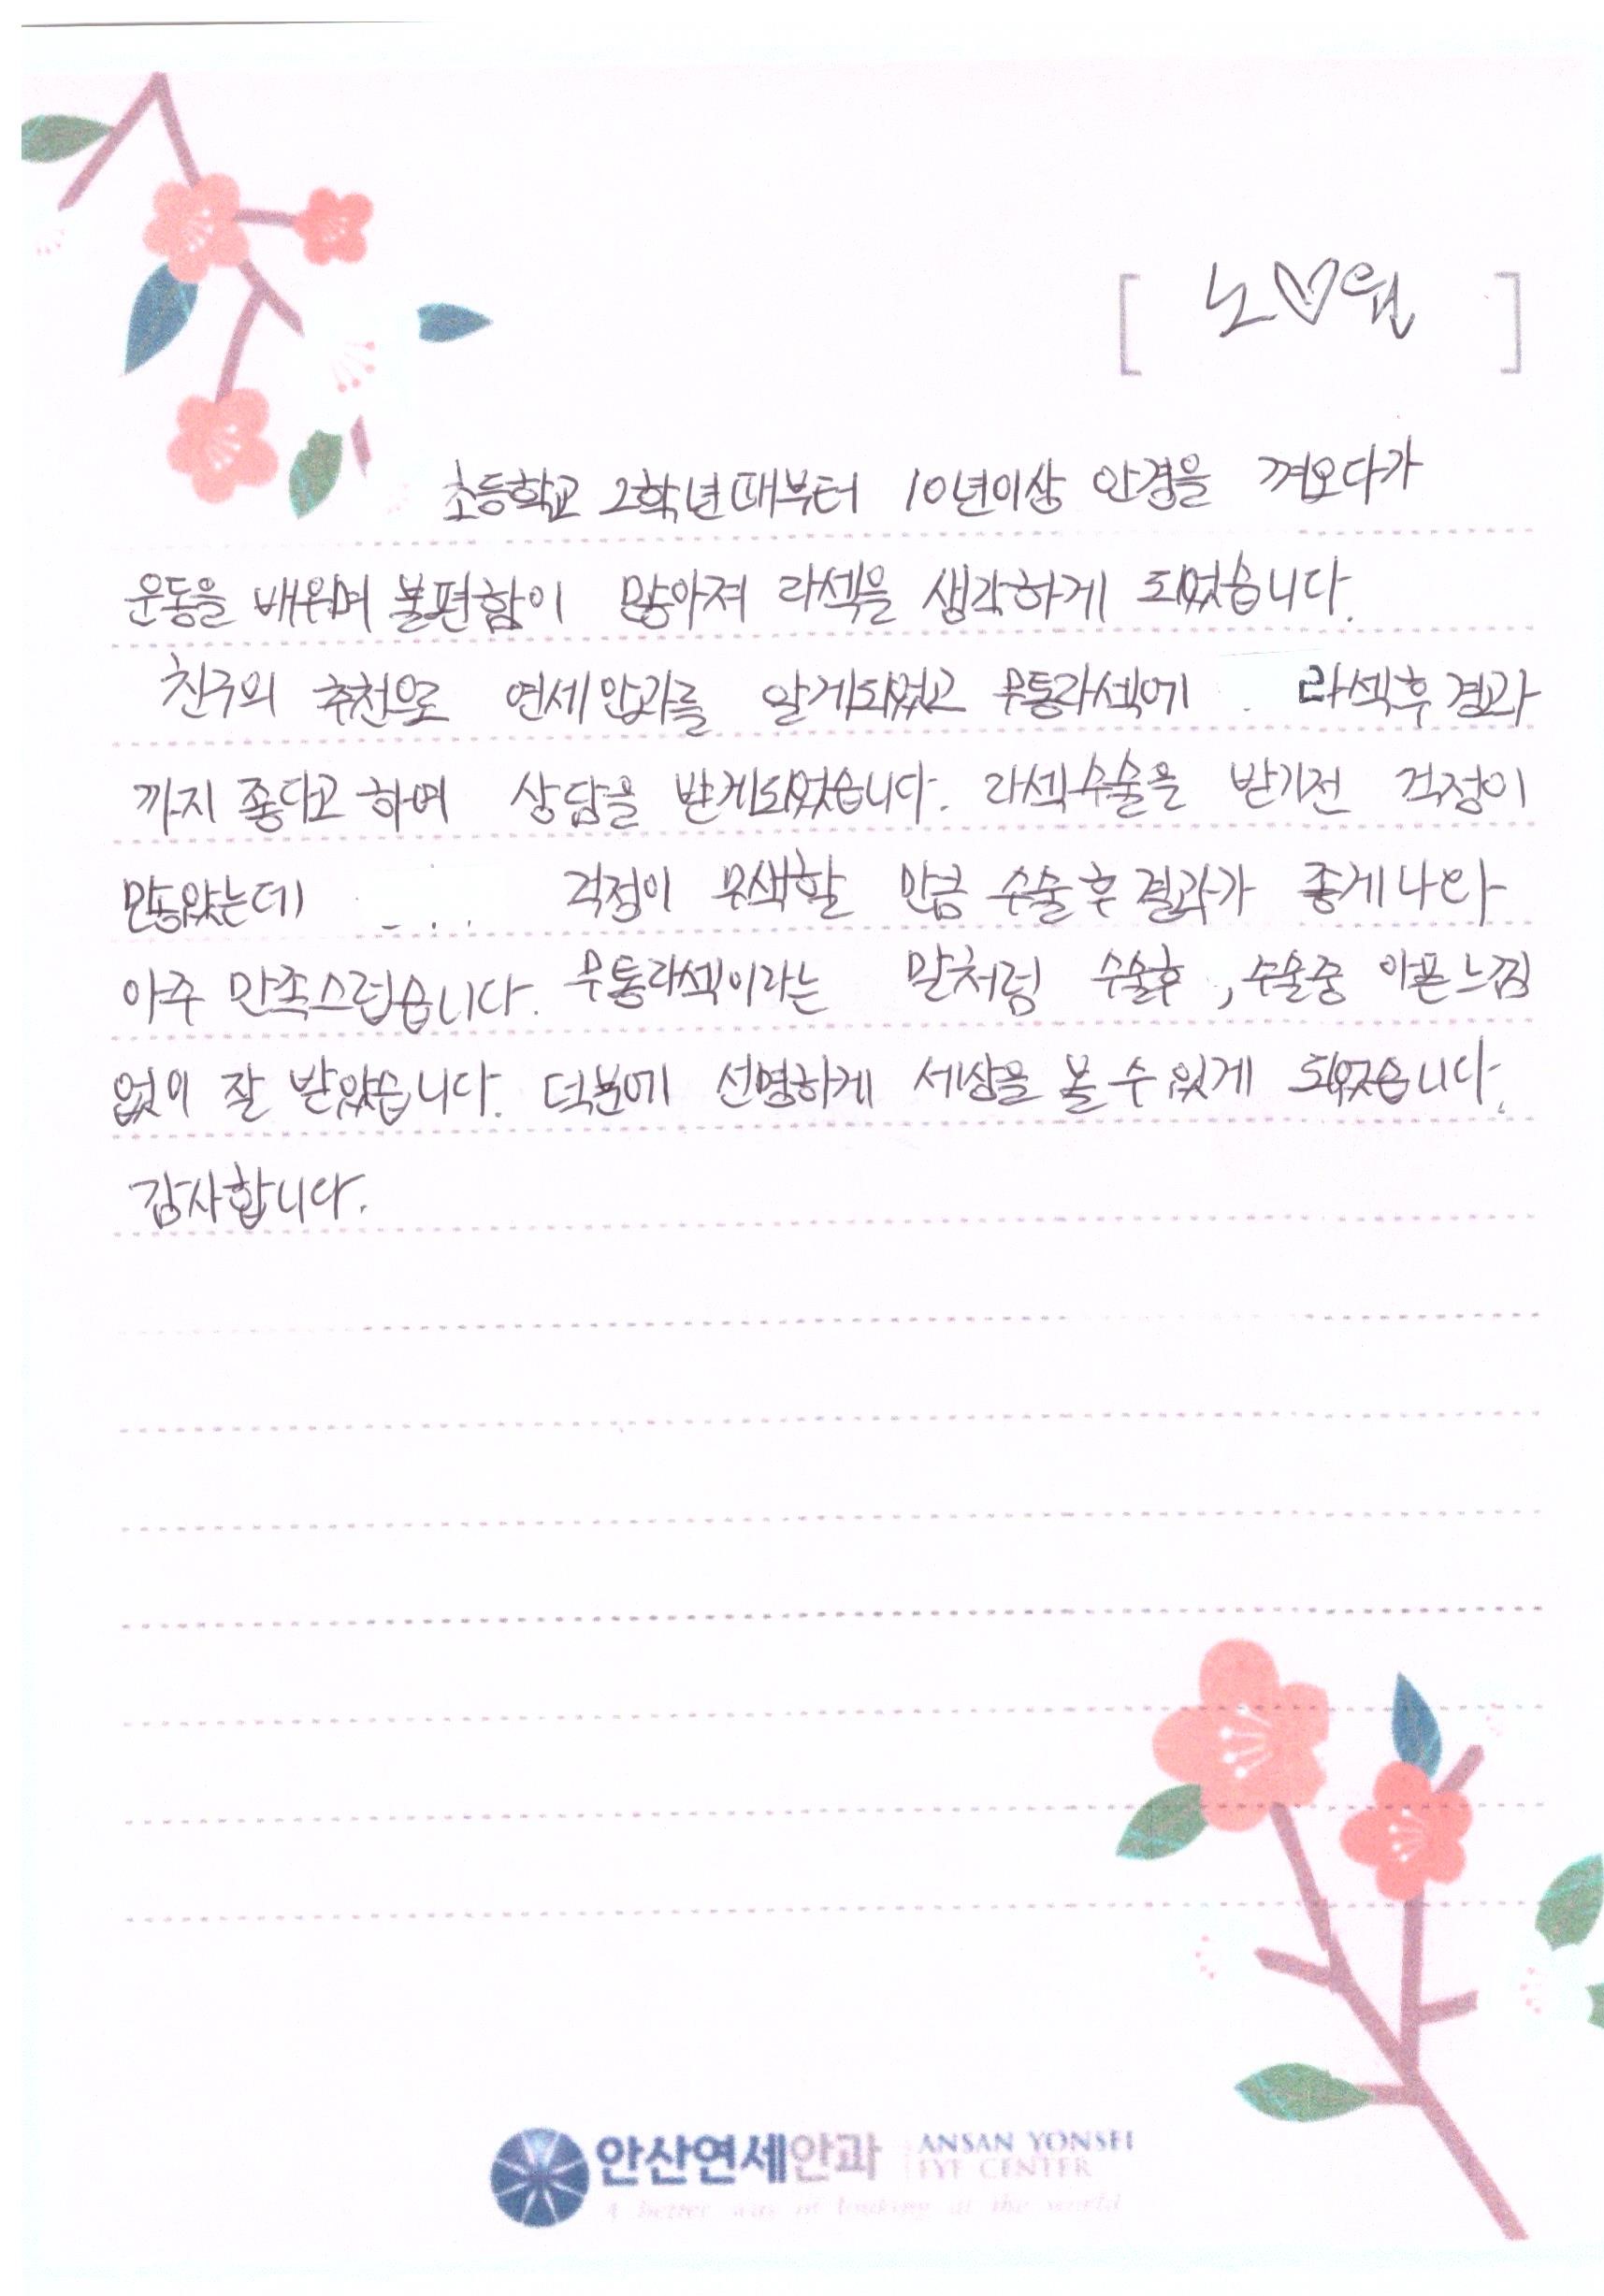 [ 노♡원 ]
초등학교 2학년때부터 10년이상 안경을 껴오다가
운동을 배우며 불편함이 많아져 라섹을 생각하게 되었습니다.
친구의 추천으로 연세안과를 알게되었고 무통라섹에 라섹후 경과
까지 좋다고 하여 상담을 받게되었습니다. 라섹수술을 받기전 걱정이
많았는데 걱정이 무색할 만큼 수술후 결과가 좋게나와
아주 만족스럽습니다. 무통라섹이라는 말처럼 수술후, 수술중 아픈느낌
없이 잘 받았습니다. 덕분에 선명하게 세상을 볼수있게 되었습니다.
감사합니다.
안산연세안과 ANSAN YONSEI
EYE CENTER
A better way in looking at the world